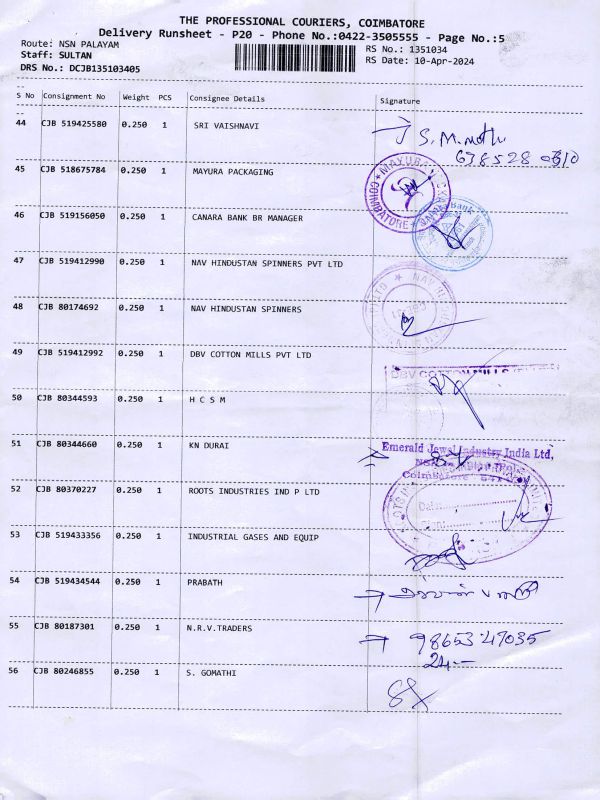 THE PROFESSIONAL COURIERS, COIMBATORE
Delivery Runsheet - P20 - Phone No.:0422-3505555 - Page No.:5
Route: NSN PALAYAM
RS No.: 1351034
Staff: SULTAN
RS Date: 10-Apr-2024
DRS No.: DCJB135103405
S No Consignment No Weight PCS Consignee Details Signature
44 CJB 519425580 0.250 1 SRI VAISHNAVI
45 CJB 518675784 0.250 1 MAYURA PACKAGING
MAYURA
COIMBATORE
46 CJB 519156050 0.250 1 CANARA BANK BR MANAGER
Bank
47 CJB 519412990 0.250 1 NAV HINDUSTAN SPINNERS PVT LTD
48 CJB 80174692 0.250 1 NAV HINDUSTAN SPINNERS
49 CJB 519412992 0.250 1 DBV COTTON MILLS PVT LTD
DBV COTTON MILLS
50 CJB 80344593 0.250 1 H C S M
51 CJB 80344660 0.250 1 KN DURAI
Emerald Jewel Industry India Ltd,
Coimbatore
52 CJB 80370227 0.250 1 ROOTS INDUSTRIES IND P LTD
Date
53 CJB 519433356 0.250 1 INDUSTRIAL GASES AND EQUIP
54 CJB 519434544 0.250 1 PRABATH
55 CJB 80187301 0.250 1 N.R.V.TRADERS
98653 47035
56 CJB 80246855 0.250 1 S. GOMATHI